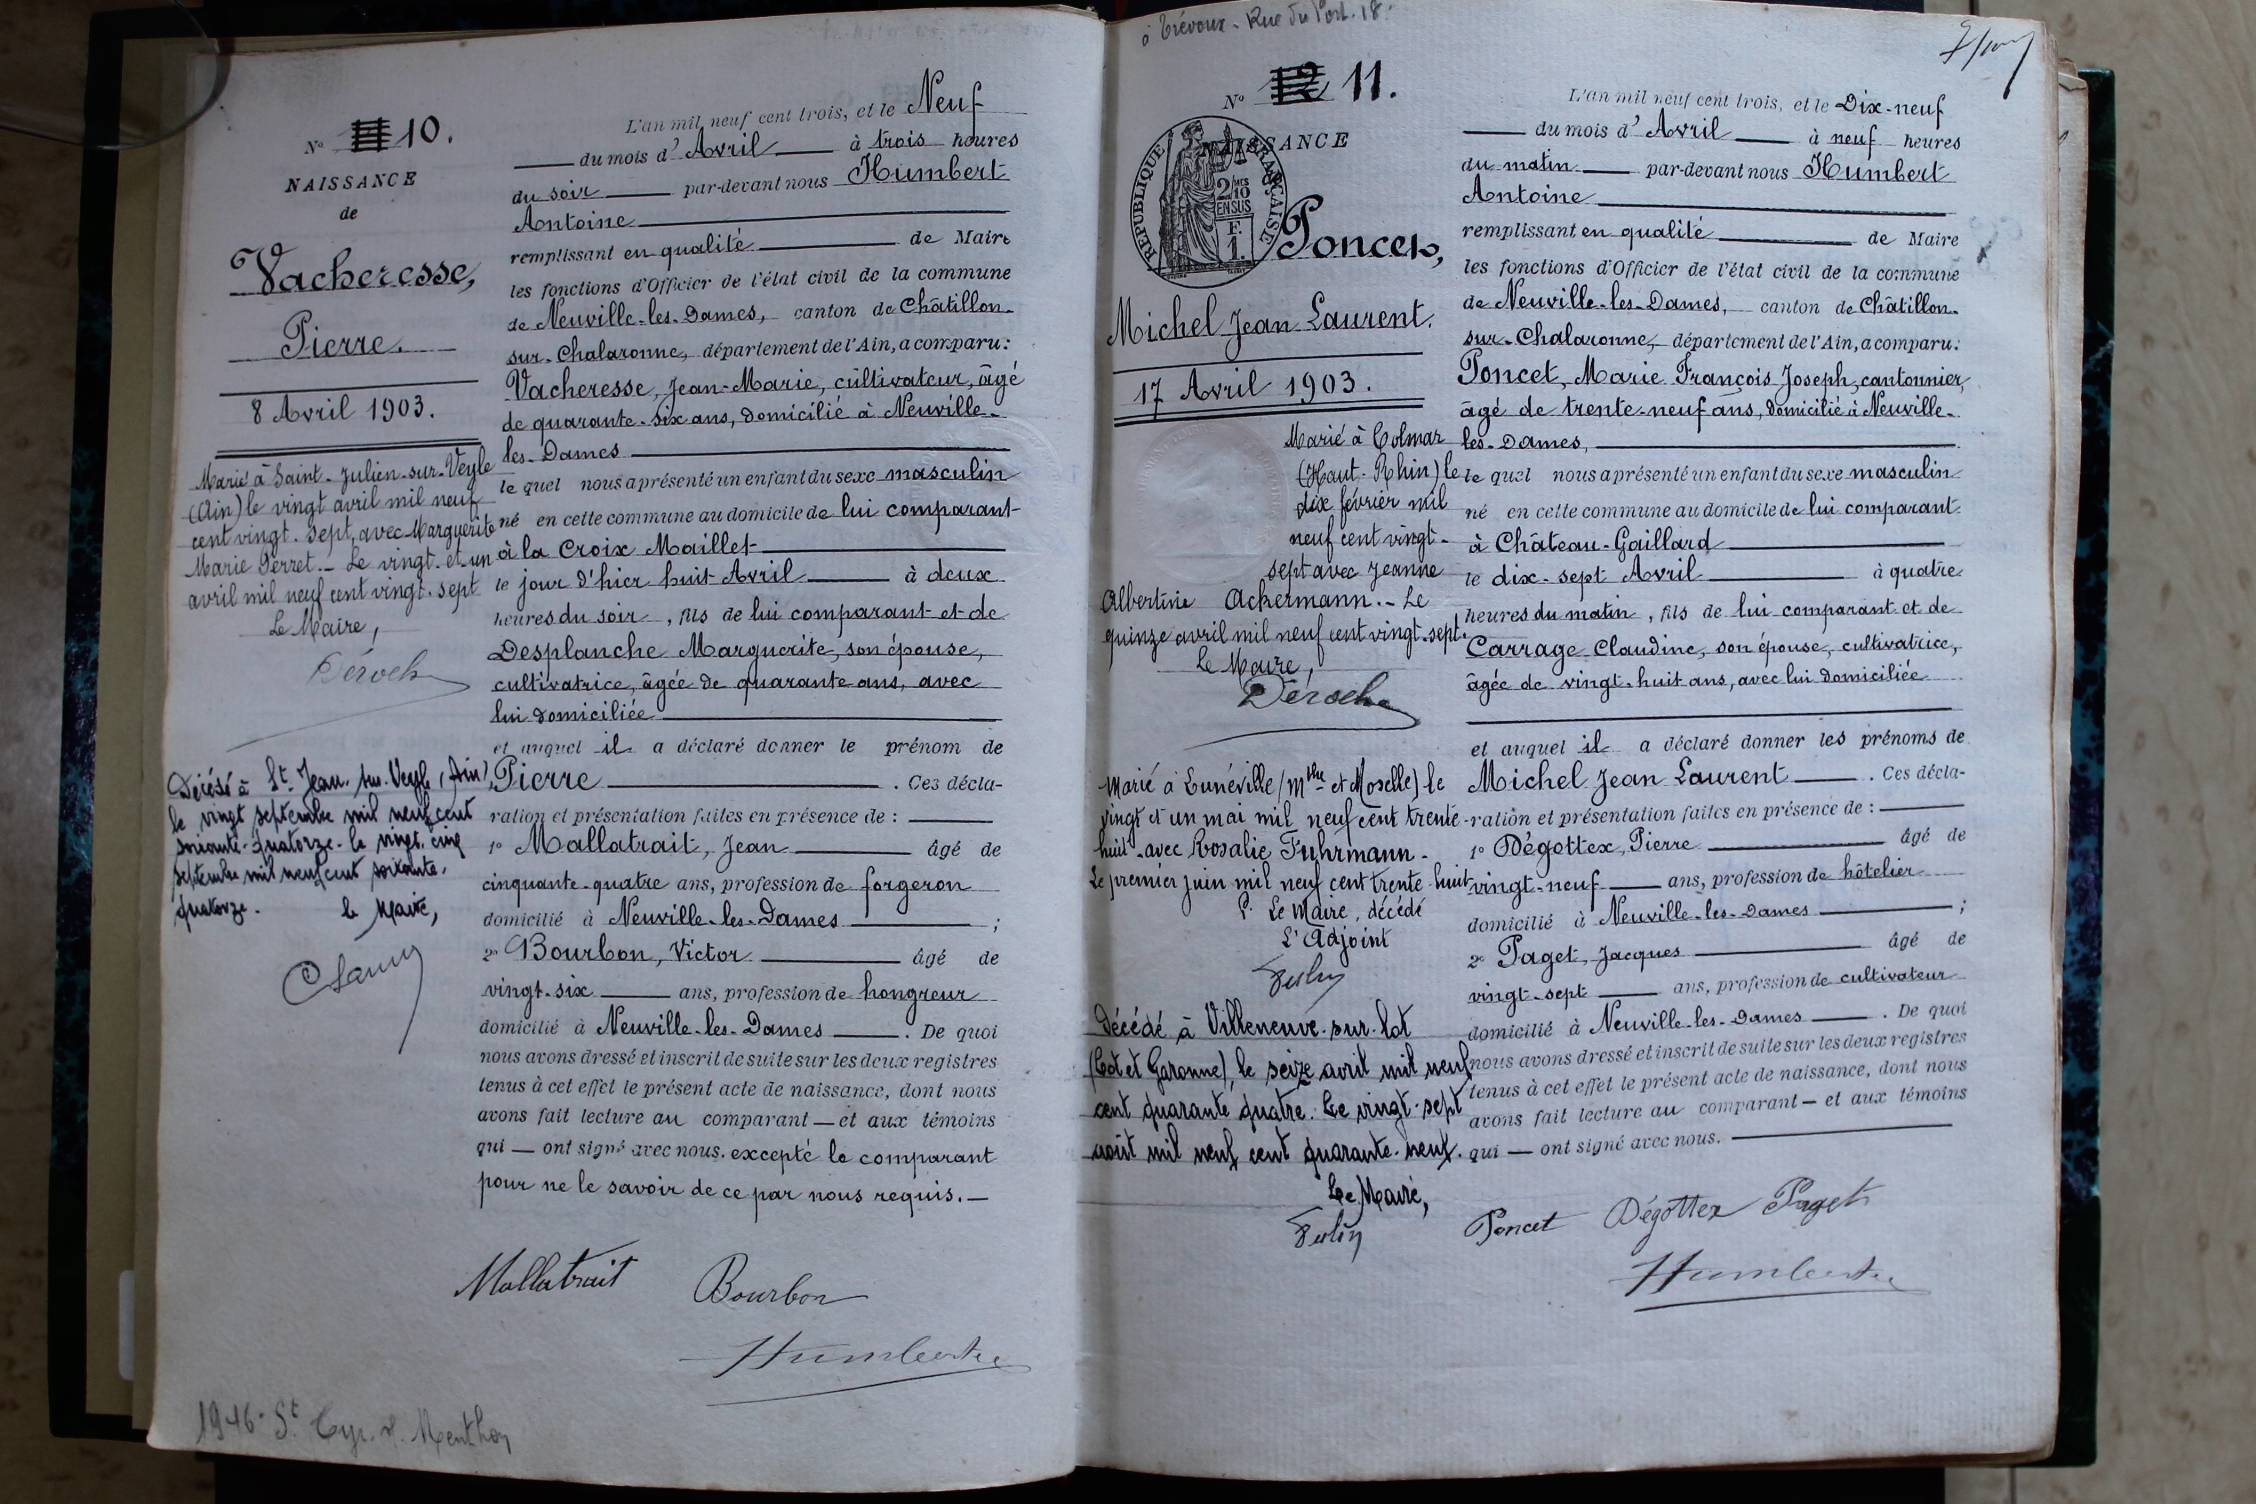 N° 10.
NAISSANCE
de
Vacheresse,
Pierre.
8 Avril 1903.
Marié à Saint-Julien-sur-Veyle
(Ain) le vingt avril mil neuf
cent vingt-sept, avec Marguerite
Marie Perret._ Le vingt-et-un
avril mil neuf cent vingt-sept
Le Maire,
Déroche
Décédé à St Jean-sur-Veyle (Ain)
le vingt septembre mil neuf cent
soixante-quatorze - le vingt-cinq
septembre mil neuf cent soixante-
quatorze. le Maire,
L'an mil neuf cent trois, et le Neuf
du mois d'Avril à trois heures
du soir par-devant nous Humbert
Antoine
remplissant en qualité de Maire
les fonctions d'Officier de l'état civil de la commune
de Neuville-les-Dames, canton de Châtillon-
sur-Chalaronne, département de l'Ain, a comparu:
Vacheresse, Jean-Marie, cultivateur, âgé
de quarante-six ans, domicilié à Neuville-
les-Dames
le quel nous a présenté un enfant du sexe masculin
né en cette commune au domicile de lui comparant
à la Croix Maillet
le jour d'hier huit Avril à deux
heures du soir, fils de lui comparant et de
Desplanche Marguerite, son épouse,
cultivatrice, âgée de quarante ans, avec
lui domiciliée
et auquel il a déclaré donner le prénom de
Pierre. Ces décla-
ration et présentation faites en présence de :
1° Mallatrait, Jean âgé de
cinquante-quatre ans, profession de forgeron
domicilié à Neuville-les-Dames ;
2° Bourbon, Victor âgé de
vingt-six ans, profession de hongreur
domicilié à Neuville-les-Dames. De quoi
nous avons dressé et inscrit de suite sur les deux registres
tenus à cet effet le présent acte de naissance, dont nous
avons fait lecture au comparant — et aux témoins
qui — ont signé avec nous. excepté le comparant
pour ne le savoir de ce par nous requis.—
Mallatrait Bourbon
Humbert
1946 - St Cyr-s/-Menthon
à Trévoux - Rue du Port. 18.
N° 12 11.
NAISSANCE
RÉPUBLIQUE FRANÇAISE
2/10 MES
EN SUS
F.
1.
Poncet,
Michel Jean Laurent.
17 Avril 1903.
Marié à Colmar
(Haut-Rhin) le
dix février mil
neuf cent vingt-
sept avec Jeanne
Albertine Ackermann._ Le
quinze avril mil neuf cent vingt-sept.
Le Maire,
Déroche
Marié à Lunéville (Mthe et Moselle) le
vingt et un mai mil neuf cent trente-
huit avec Rosalie Fuhrmann.
Le premier juin mil neuf cent trente-huit
P. Le Maire, décédé
L'Adjoint
Décédé à Villeneuve-sur-lot
(Lot et Garonne), le seize avril mil neuf
cent quarante quatre. Le vingt-sept
août mil neuf cent quarante-neuf.
Le Maire,
L'an mil neuf cent trois, et le Dix-neuf
du mois d'Avril à neuf heures
du matin par-devant nous Humbert
Antoine
remplissant en qualité de Maire
les fonctions d'Officier de l'état civil de la commune
de Neuville-les-Dames, canton de Châtillon-
sur-Chalaronne, département de l'Ain, a comparu:
Poncet, Marie François Joseph, cantonnier,
âgé de trente-neuf ans, domicilié à Neuville-
les-Dames,
le quel nous a présenté un enfant du sexe masculin
né en cette commune au domicile de lui comparant
à Château-Gaillard
le dix-sept Avril à quatre
heures du matin, fils de lui comparant et de
Carrage Claudine, son épouse, cultivatrice,
âgée de vingt-huit ans, avec lui domiciliée
et auquel il a déclaré donner les prénoms de
Michel Jean Laurent. Ces décla-
ration et présentation faites en présence de :
1° Dégottex, Pierre âgé de
vingt-neuf ans, profession de hôtelier
domicilié à Neuville-les-Dames ;
2° Paget, Jacques âgé de
vingt-sept ans, profession de cultivateur
domicilié à Neuville-les-Dames. De quoi
nous avons dressé et inscrit de suite sur les deux registres
tenus à cet effet le présent acte de naissance, dont nous
avons fait lecture au comparant — et aux témoins
qui — ont signé avec nous.
Poncet Dégottex Paget
Humbert